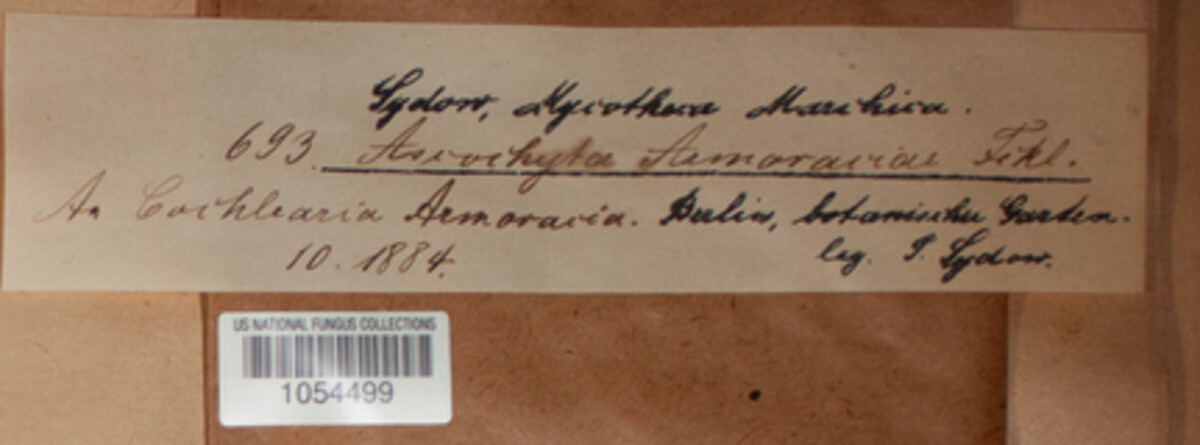 Sydow, Mycotheca Marchica.
693. Ascochyta Armoraciae Fckl.
An Cochlearia Armoracia. Berlin, botanischer Garten.
10. 1884. leg. P. Sydow.
US NATIONAL FUNGUS COLLECTIONS
1054499